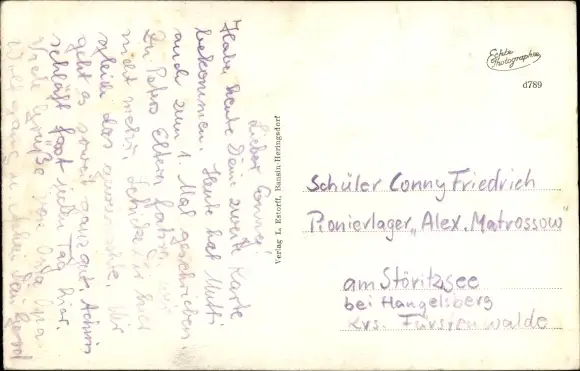 Lieber Conny!
Habe heute Deine zweite Karte
bekommen. Heute hat Mutti
auch zum 1. Mal geschrieben.
Zu Eltern fahren wir
nicht mehr,
gleich das Wir
geht es soweit ganz gut. Achim
schläft fast jeden Tag hier.
Viele Grüße von Oma
Echte
Photographie
d789
Verlag L. Estorff, Bansin-Heringsdorf
Schüler Conny Friedrich
Pionierlager „Alex. Matrossow"
am Störitzsee
bei Hangelsberg
Krs. Fürstenwalde